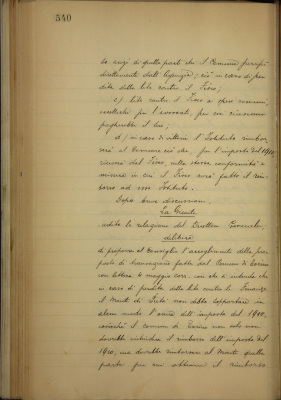 540
lo anzi di quella parte che il Comune percepì
direttamente dall'Esattore; ciò in caso di per-
dita della lite contro il Fisco;
c) lite contro il Fisco a spese comuni,
per cui ciascuno
pagherebbe il suo;
d) in caso di vittoria l'Istituto rimbor-
serà al Comune ciò che, per l'imposta del 1910,
riceverà dal Fisco nella stessa conformità e
misura in cui il Fisco avrà fatto il rim-
borso ad esso Istituto.
Dopo breve discussione
La Giunta
udita la relazione del Direttore Generale,
delibera
di proporre al Consiglio l'accoglimento della pro-
posta di transazione fatta dal Comune di Torino
con lettera 10 maggio corr. con che s'intenda che
in caso di perdita della lite contro le Finanze
il Monte di Pietà non debba sopportare in
alcun modo l'onere dell'imposta del 1910,
cosicché il comune di Torino non solo non
dovrebbe richiedere il rimborso dell'imposta del
1910, ma dovrebbe rimborsare al Monte quella
parte per cui ottenne il rimborso